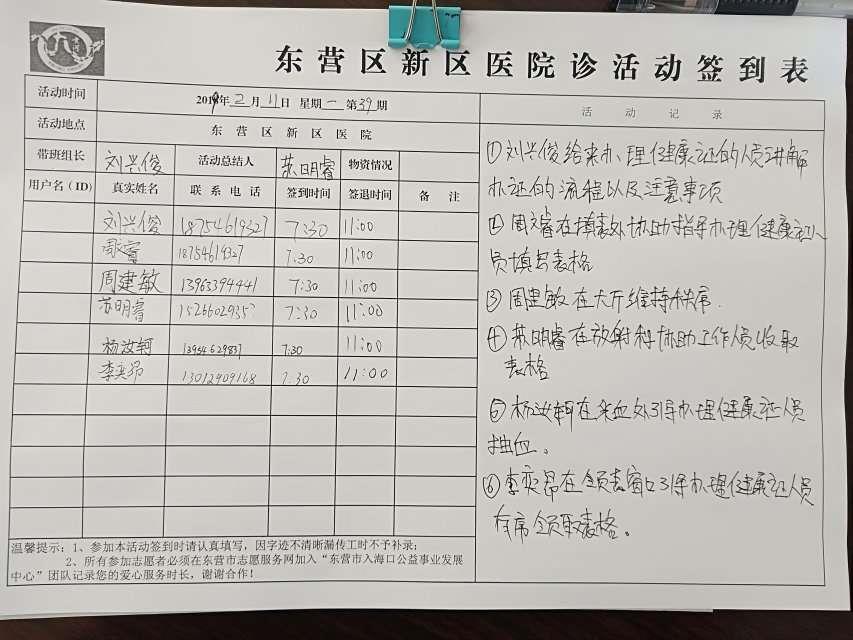 东营区新区医院诊活动签到表
活动时间 2019年2月11日 星期一 第39期 活动记录
活动地点 东营区新区医院
带班组长 刘兴俊 活动总结人 苏明睿 物资情况
用户名(ID) 真实姓名 联系电话 签到时间 签退时间 备注
刘兴俊 18754619327 7:30 11:00
周文睿 18754619327 7:30 11:00
周建敏 13963394441 7:30 11:00
苏明睿 7:30 11:00
杨汝轲 7:30 11:00
李奕昂 13012909168 7:30 11:00
①刘兴俊给来办理健康证的人员讲解
办证的流程以及注意事项
②周文睿在填表处协助指导办理健康证人
员填写表格
③周建敏在大厅维持秩序.
④苏明睿在放射科协助工作人员收取
表格
⑤杨汝轲在采血处引导办理健康证人员
抽血。
⑥李奕昂在领表窗口引导办理健康证人员
有序领取表格。
温馨提示:1、参加本活动签到时请认真填写,因字迹不清晰漏传工时不予补录;
2、所有参加志愿者必须在东营市志愿服务网加入“东营市入海口公益事业发展
中心”团队记录您的爱心服务时长,谢谢合作!